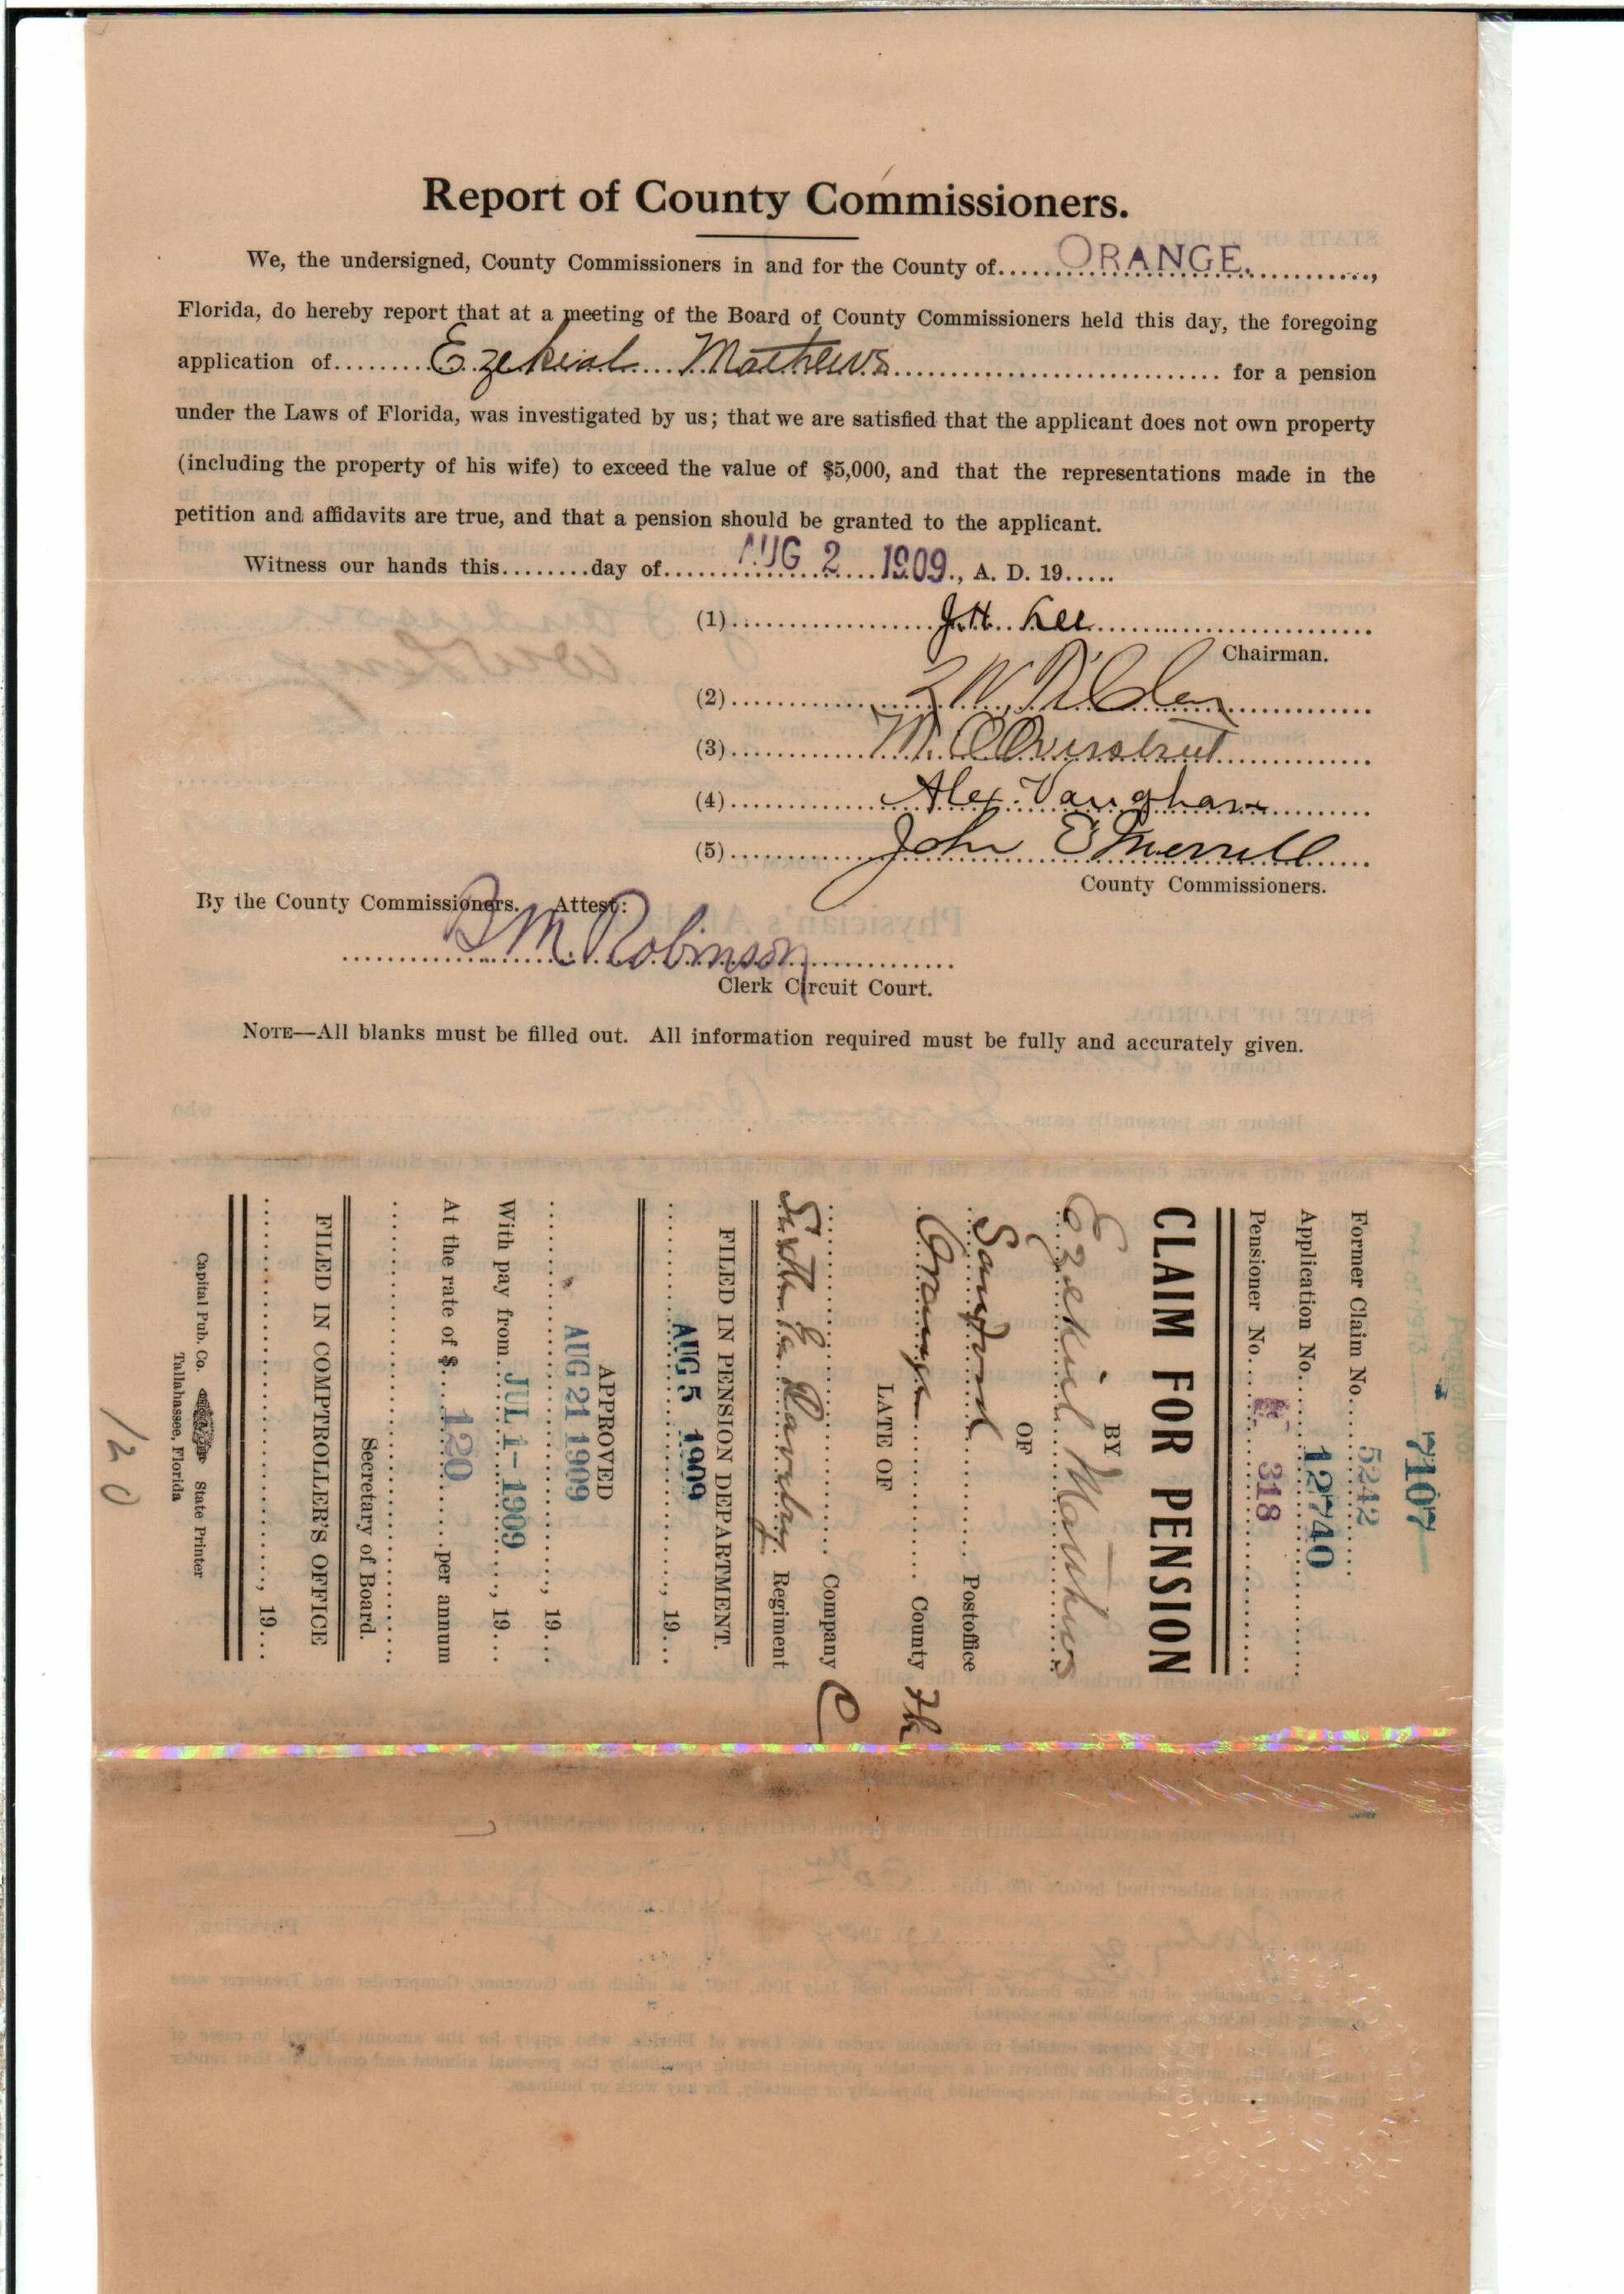 Report of County Commissioners.
We, the undersigned, County Commissioners in and for the County of......ORANGE.............,
Florida, do hereby report that at a meeting of the Board of County Commissioners held this day, the foregoing
application of.........Ezekial....Mathews.............................. for a pension
under the Laws of Florida, was investigated by us; that we are satisfied that the applicant does not own property
(including the property of his wife) to exceed the value of $5,000, and that the representations made in the
petition and affidavits are true, and that a pension should be granted to the applicant.
Witness our hands this........day of......AUG 2 1909., A. D. 19.....
(1)..................J.H. Lee..........................
Chairman.
(2)
(3)..............M. O Overstreet..............
(4)...............Alex. Vaughan...........
(5)..............John E Merrill......
County Commissioners.
By the County Commissioners. Attest:
B M. Robinson
Clerk Circuit Court.
NOTE—All blanks must be filled out. All information required must be fully and accurately given.
7107
Former Claim No....5242.....
Application No....12740..........
Pensioner No.... 318 ...............
CLAIM FOR PENSION
BY
Ezekiel Mathews
OF
Sanford........... Postoffice
Orange.......... County
LATE OF
E............ Company C
Ga. Cavalry. Regiment
FILED IN PENSION DEPARTMENT.
AUG 5 1909........, 19...
APPROVED
AUG 21 1909........, 19...
With pay from..JUL 1 - 1909....., 19...
At the rate of $....120......per annum
Secretary of Board.
FILED IN COMPTROLLER'S OFFICE
......................................, 19...
Capital Pub. Co. State Printer
Tallahassee, Florida
120